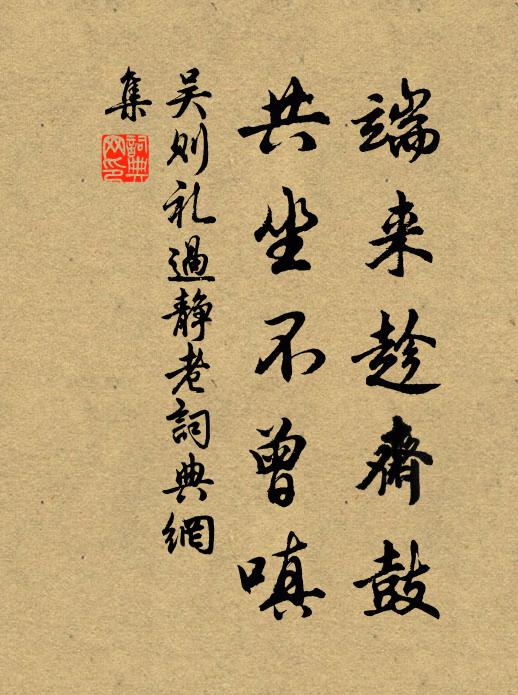 端来趁齋鼓
共坐不曾嗔
吴则礼過静老詞典網
集
詞典网印